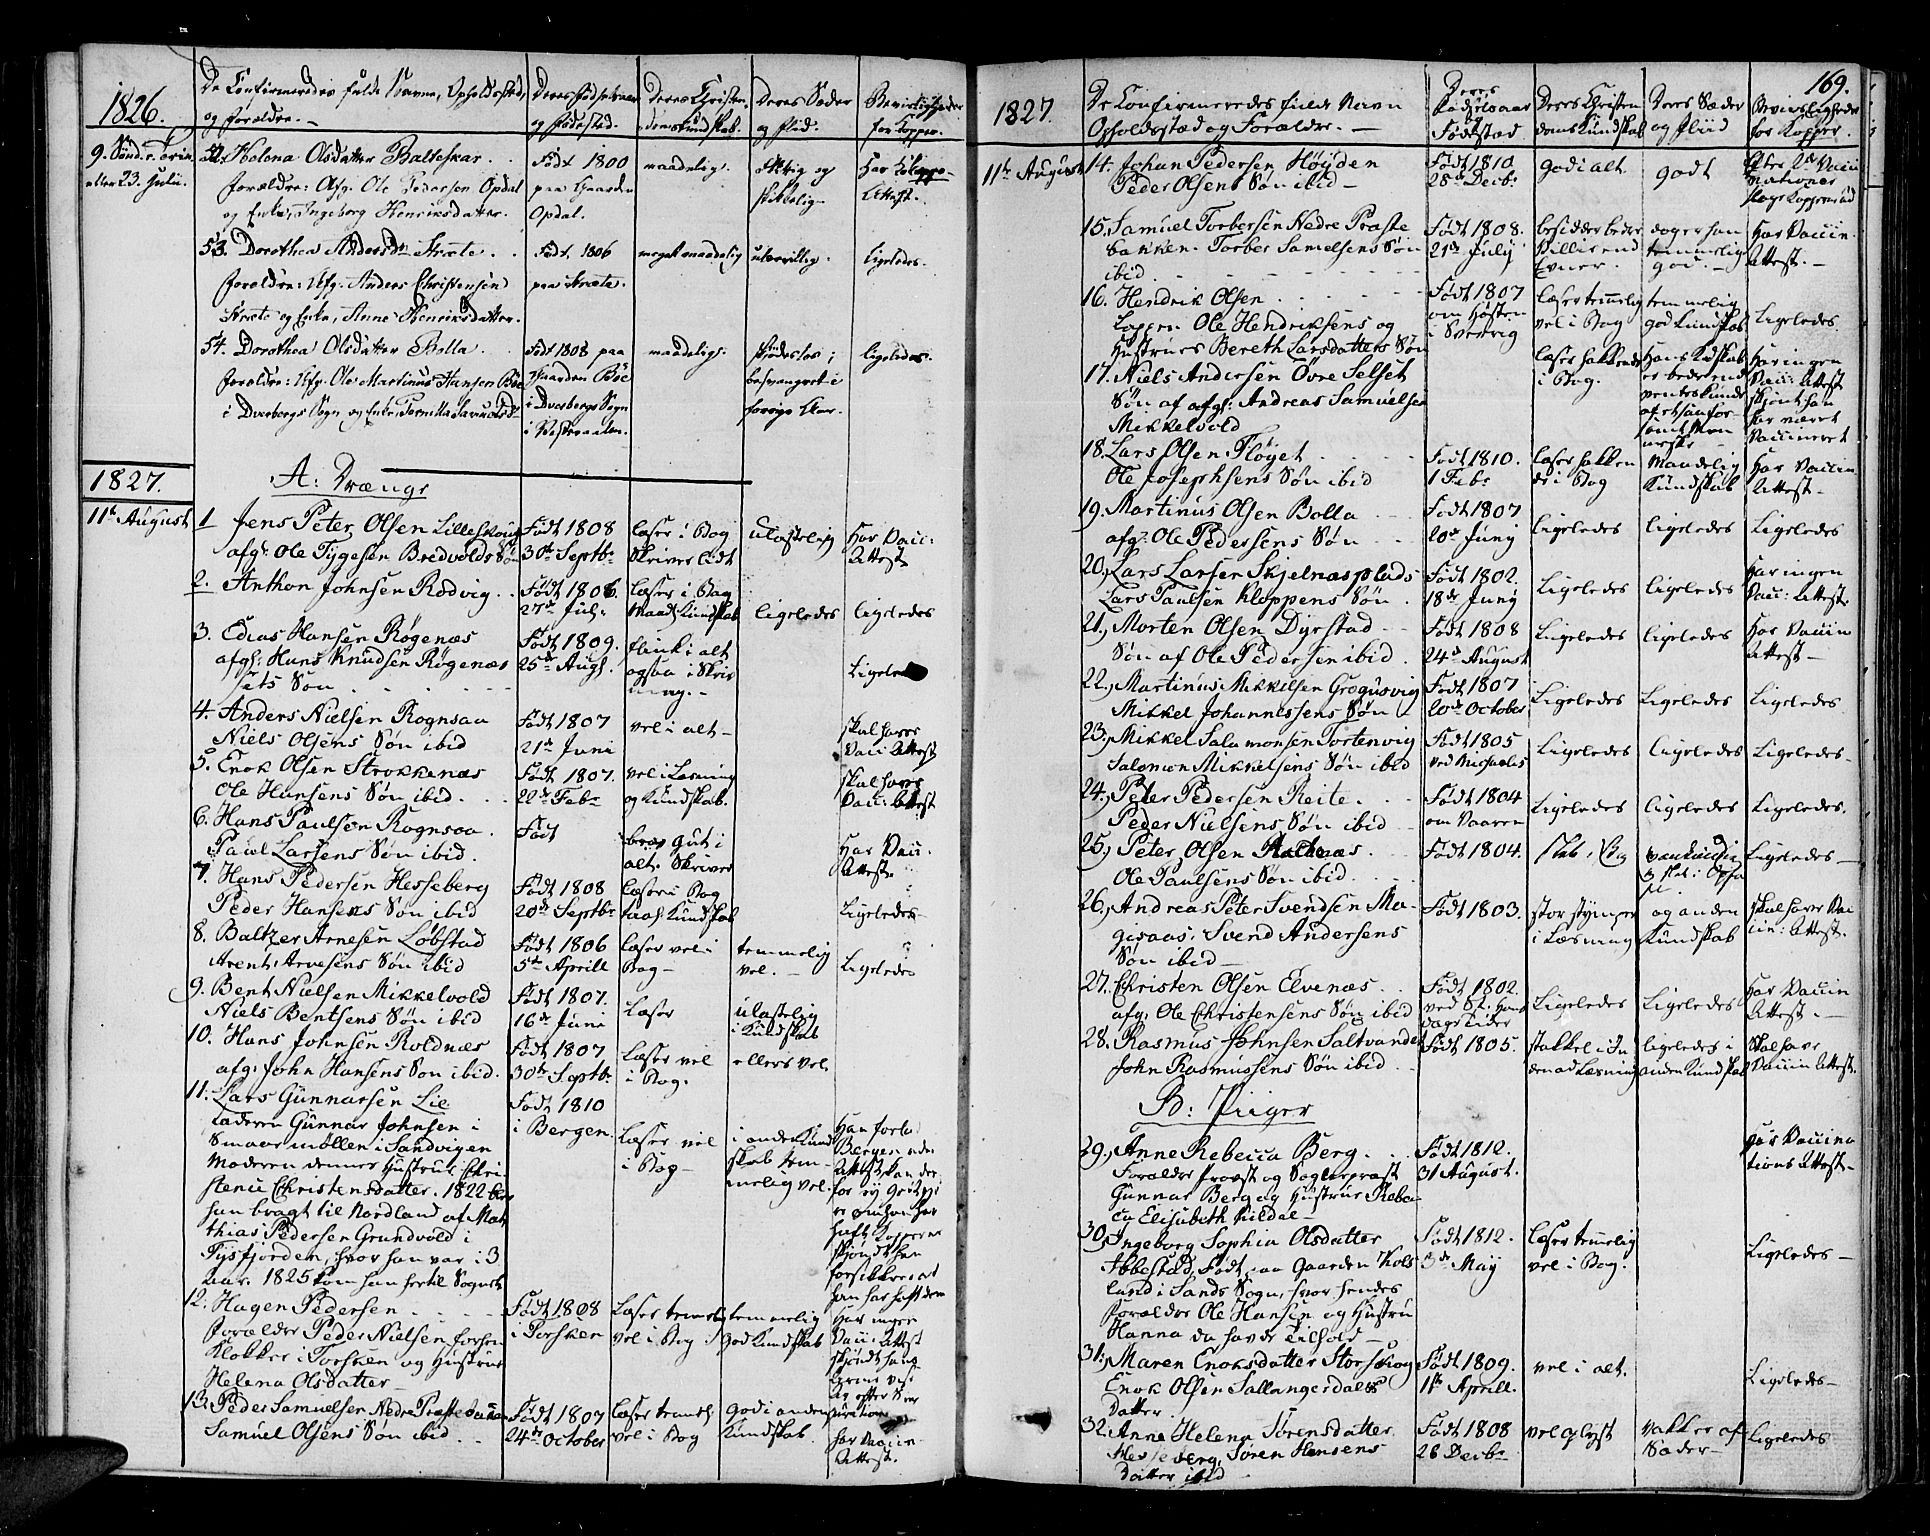 1826.
De Confirmeredes fulde Navne, Opholdssted,
og Forældre.
Deres Fødselsaar
og Fødested.
Deres Christen-
domskundskab.
Deres Sæder
og Flid.
for Kopper.
9. Sønd. e. Trin.
eller 23. Julii.
52. Helena Olsdatter Balteskar
Forældre: Afg. Ole Pedersen Opdal
og Enke, Ingeborg Henriksdatter.
Født 1800
paa Gaarden
Opdal.
maadelig.
flittig og
skikkelig
Attest.
53. Dorothea Andersdr Stræte
Forældre: Afg. Anders Christensen
Stræte og Enke, Anne Henriksdatter.
Født 1806
paa Stræte.
meget maadelig
ligeledes.
54. Dorothea Olsdatter Bolla
Forældre: Afg. Ole Martinus Hansen Böe
i Dverbergs Sogn og Enke, Pernilla
Født 1808 paa
Gaarden Böe
i Dverbergs Sogn
i Vesteraalen.
maadelig.
skjødesløs;
besvangret i
forrige Aar.
ligeledes.
1827.
A: Drænge
11te August
1 Jens Peter Olsen Lilleskoug
afg: Ole Tygesen Bredvolds Søn
Født 1808
30te Septbr
læser i Bog
Skriver lidt
ulastelig
Har Vacc:
Attest
2. Anthon Johnsen Rødvig
Født 1806.
27de Jul:
læser i Bog
Maadl Kundskab
ligeledes
ligeledes
3. Edias Hansen Røgenæs
afg: Hans Knudsen Røgenæs
Søn
Født 1809.
25de Aug:
flink i alt
ogsaa i Skriv
ning.
Ligeledes
4. Anders Nielsen Rognsaa
Niels Olsens Søn ibid
Født 1807
21de Juni
vel i alt
skal have
Vacc: Attest
5. Enok Olsen Strokkenæs
Ole Hansens Søn ibid.
Født 1807.
22de Febr
vel i Læsning
og Kundskab.
skal have
Vacc: Attest
6. Hans Paulsen Rognsaa
Paul Larsens Søn ibid.
Født
gut i
alt. Skriver
Har Vacc.
Attest
7. Hans Pedersen Hesseberg
Peder Hansens Søn ibid
Født 1808
20de Septbr
læser i Bog
Kundskab
Ligeledes
8. Baltzer Arnesen Løbstad
Arent Arnesens Søn ibid
Født 1806
5te Aprill
læser vel i
Bog
temmelig
vel.
Ligeledes
9. Bent Nielsen Mikkelvold
Niels Bentsens Søn ibid
Født 1807.
16de Juni
Læser
ulastelig
i Kundskab
10. Hans Johnsen Roldnæs
afg: John Hansens Søn ibid.
Født 1807
30te Septbr
Læser vel
i Bog.
ellers vel.
11. Lars Gunnarsen Lie
Faderen Gunnar Johnsen i
Smaaermøllen i Sandvigen
Moderen dennes Hustrue Chri-
stence Christensdatter. 1822 blev
han bragt til Nordland af Mat
thias Pedersen Grundvold i
Tysfjorden, hvor han var i 3
Aar. 1825 kom han her til Sognet
Født 1810
i Bergen.
Læser vel
i Bog
i anden Kund
skab tem-
melig vel.
Han forlod
Bergen uden
Attest
haft Kopperne
skjøndt han
forsikkrer at
han har haft dem
12. Hagen Pedersen
Forældre Peder Nielsen forhen
Klokker i Torsken og Hustrue
Helena Olsdatter
Født 1808
i Torsken
Læser temelig
vel i Bog
temmelig
god Kundskab
Har ingen
Vacc: Attest
skjøndt han
13. Peder Samuelsen Nedre Præstebakken
Samuel Olsens Søn ibid
Født 1807
24de October
læser temel:
vel i Bog
god i anden
Kundskab
har Vaccin
Attest.
169.
1827.
De Confirmeredes fulde Navn
Opholdsstæd og Forældre.
Deres
Fødselsaar
og
Fødestæd
Deres Christen
doms Kundskab
Deres Sæder
og Fliid
Beviisligheder
for Kopper.
11te August
14. Johan Pedersen Høyden
Peder Olsens Søn ibid
Født 1810
28de Decbr
god i alt
godt
15. Samuel Torbersen Nedre Præste
bakken. Torber Samuelsens Søn
ibid
Født 1808.
21de July
besidder bedre
Villie end
Evner.
dog er han
temmelig
god.
Har Vaccin.
Attest.
16. Hendrik Olsen
Lappen Ole Hendriksens og
Hustrues Bereth Larsdatters Søn
Født 1807
om Høsten
i Sverrig
læser temelig
vel i Bog
temmelig
god Kundskab
Ligeledes
17. Niels Andersen Øvre Selset
Søn af afg: Andreas Samuelsen
Mikkelvold
læser hakkende
i Bog.
Har ingen
Vacc: Attest
skjønt han
har været
Vaccineret
18. Lars Olsen Fløyet
Ole Josephsens Søn ibid
Født 1810.
1 Febr
læser hakken
de i Bog
Maadelig
Kundskab
Har Vaccin
Attest
19. Martinus Olsen Bolla
afg: Ole Pedersens Søn
Født 1807
20de Juny
ligeledes
ligeledes
Ligeledes
20. Lars Larsen Skjelnæsplads
Lars Paulsen Kloppens Søn
Født 1802.
18de Juny
Ligeledes
ligeledes
Har ingen
Vacc: Attest
21. Morten Olsen Dyrstad
Søn af Ole Pedersen ibid
Født 1808
24de August
Ligeledes
ligeledes
Har Vaccin
Attest
22. Martinus Mikkelsen Grøgusvig
Mikkel Johannessens Søn
Født 1807
20de October
Ligeledes
Ligeledes
Ligeledes
23. Mikkel Salamonsen Tortenvig
Salomon Mikkelsens Søn ibid
Født 1805
ved Michaelis
Ligeledes
ligeledes
Ligeledes
24. Peter Pedersen Reite
Peder Nielsens Søn ibid
Født 1804
om Vaaren
Ligeledes
ligeledes
Ligeledes.
25. Peter Olsen
Ole Paulsens Søn ibid
Født 1804.
Ligeledes
26. Andreas Peter Svendsen Ma-
gisaas, Svend Andersens
Søn ibid
Født 1803.
stor stymper
i Læsning
og anden
Kundskab
skal have Vac
cin: Attest.
27. Christen Olsen Elvenæs
afg: Ole Christensens Søn ibid
Født 1802.
ved St. Hans
dags Tider
Ligeledes
Ligeledes
Har Vaccin
Attest.
28. Rasmus Johnsen Saltvandet
John Rasmussens Søn ibid
Født 1805.
stakkel i In
denad Læsning
ligeledes i
anden Kundskab
Skal have
Vaccin Attest.
B: Piiger
29. Anne Rebecca Berg
Forældre Provst og Sognepræst
Gunnar Berg og Hustrue Rebec
ca Elisabeth Kildal
Født 1812.
31 August.
Har Vaccina
tions Attest
30. Ingeborg Sophia Olsdatter
Ibbestad, Født paa Gaarden Hols
land i Sands Sogn, hvor hendes
Forældre Ole Hansen og Hustru
Hanna da havde Tilhold
Født 1812.
3de May
læser temelig
vel i Bog.
Ligeledes
31. Maren Enoksdatter Storskog
Enok Olsen Sallangerdalens
Datter
Født 1809.
11te Aprill.
vel i alt.
Ligeledes
32. Anne Helena Sørensdatter
Hesseberg, Søren Hansens
Datter ibid
Født 1808
26 Decbr
vel oplyst
Vakker af
Sæder
Ligeledes